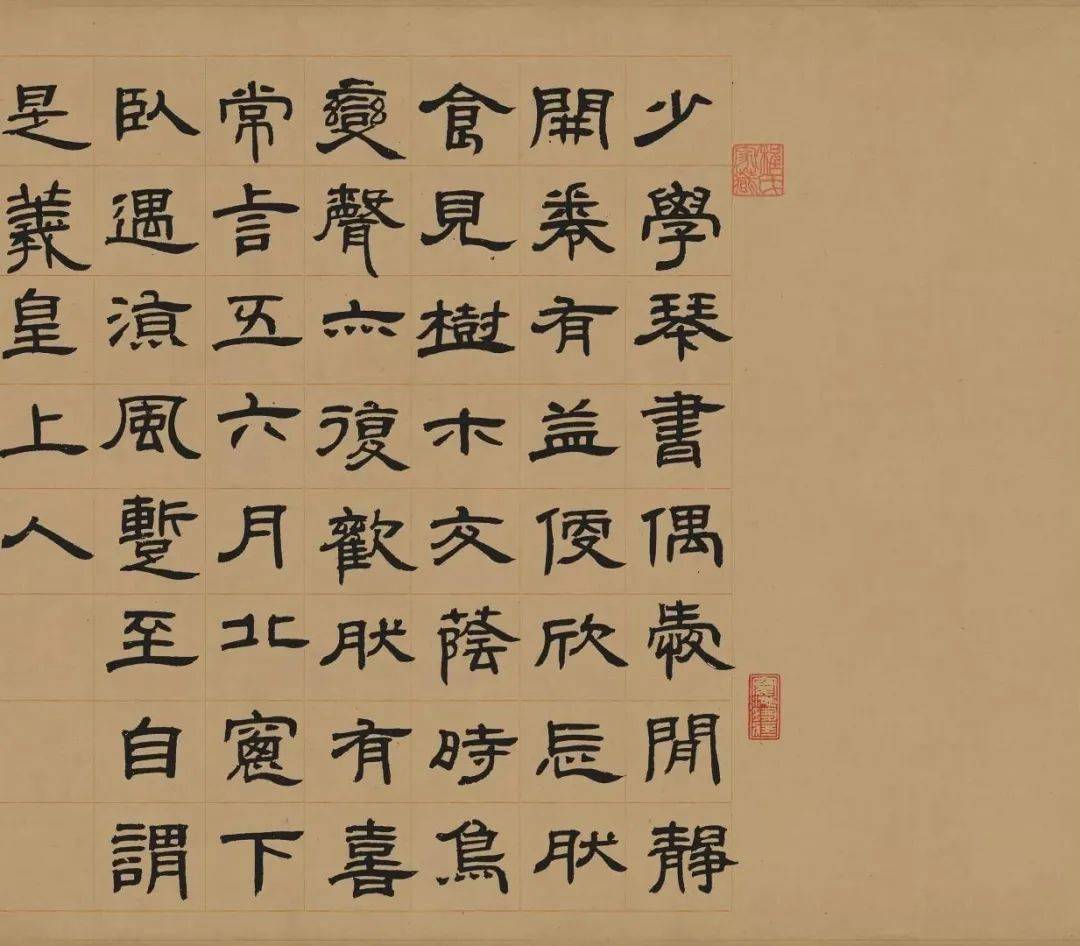 程氏家藏
少學琴書偶愛閒靜
開卷有益便欣忘肰
食見樹木交蔭時鳥
變聲亦復歡肰有喜
常言五六月北窻下
臥遇涼風暫至自謂
是羲皇上人